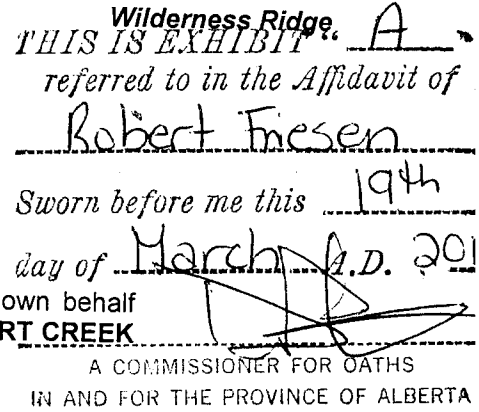 Wilderness Ridge
THIS IS EXHIBIT " A "
referred to in the Affidavit of
Robert Friesen
Sworn before me this 19th
day of March A.D. 201
own behalf
RT CREEK
A COMMISSIONER FOR OATHS
IN AND FOR THE PROVINCE OF ALBERTA